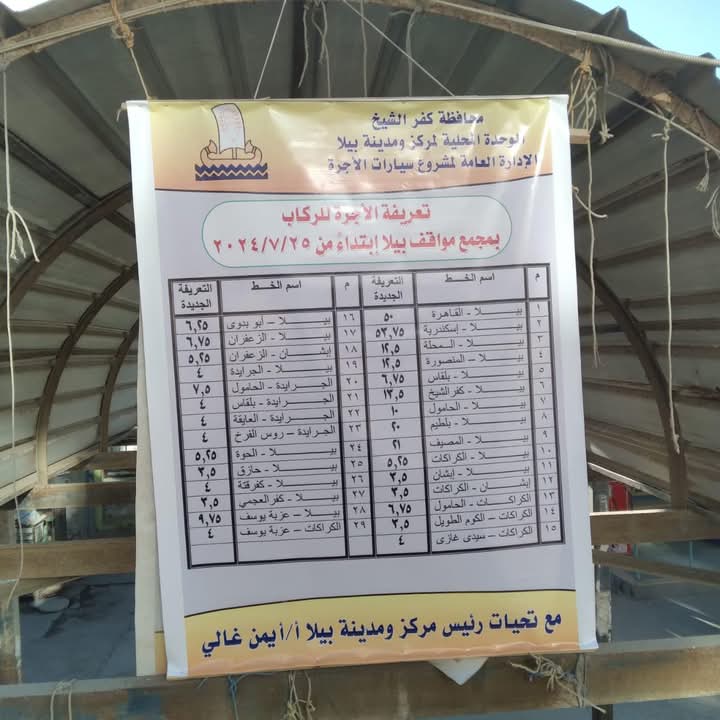 محافظة كفر الشيخ
الوحدة المحلية لمركز ومدينة بيلا
الإدارة العامة لمشروع سيارات الأجرة
تعريفة الأجرة للركاب
بمجمع مواقف بيلا إبتداءً من ٢٠٢٤/٧/٢٥
م اسم الخط التعريفة الجديدة
١ بيـــلا - القاهرة ٥٠
٢ بيـــلا - إسكندرية ٥٣,٧٥
٣ بيـــلا - المحلة ١٢,٥
٤ بيـــلا - المنصورة ١٢,٥
٥ بيـــلا - بلقاس ٦,٧٥
٦ بيـــلا - كفرالشيخ ١٣,٥
٧ بيـــلا - الحامول ١٠
٨ بيـــلا - بلطيم ٢٠
٩ بيـــلا - المصيف ٢١
١٠ بيـــلا - الكراكات ٥,٢٥
١١ بيـــلا - إبشان ٣,٥
١٢ إبشان - الكراكات ٣,٥
١٣ الكراكات - الحامول ٦,٧٥
١٤ الكراكات – الكوم الطويل ٣,٥
١٥ الكراكات – سيدى غازى ٤
م اسم الخط التعريفة الجديدة
١٦ بيـــلا - أبو بدوى ٦,٢٥
١٧ بيـــلا - الزعفران ٦,٧٥
١٨ إبشان - الزعفران ٥,٢٥
١٩ بيـــلا - الجرايدة ٤
٢٠ الجرايدة - الحامول ٧,٥
٢١ الجرايدة - بلقاس ٤
٢٢ الجرايدة - العايقة ٤
٢٣ الجرايدة – روس الفرخ ٤
٢٤ بيـــلا - الحوة ٥,٢٥
٢٥ بيـــلا - حازق ٣,٥
٢٦ بيـــلا - كفرقتة ٤
٢٧ بيـــلا - كفرالعجمي ٣,٥
٢٨ بيـــلا – عزبة يوسف ٩,٧٥
٢٩ الكراكات – عزبة يوسف ٤
مع تحيات رئيس مركز ومدينة بيلا أ/أيمن غالي